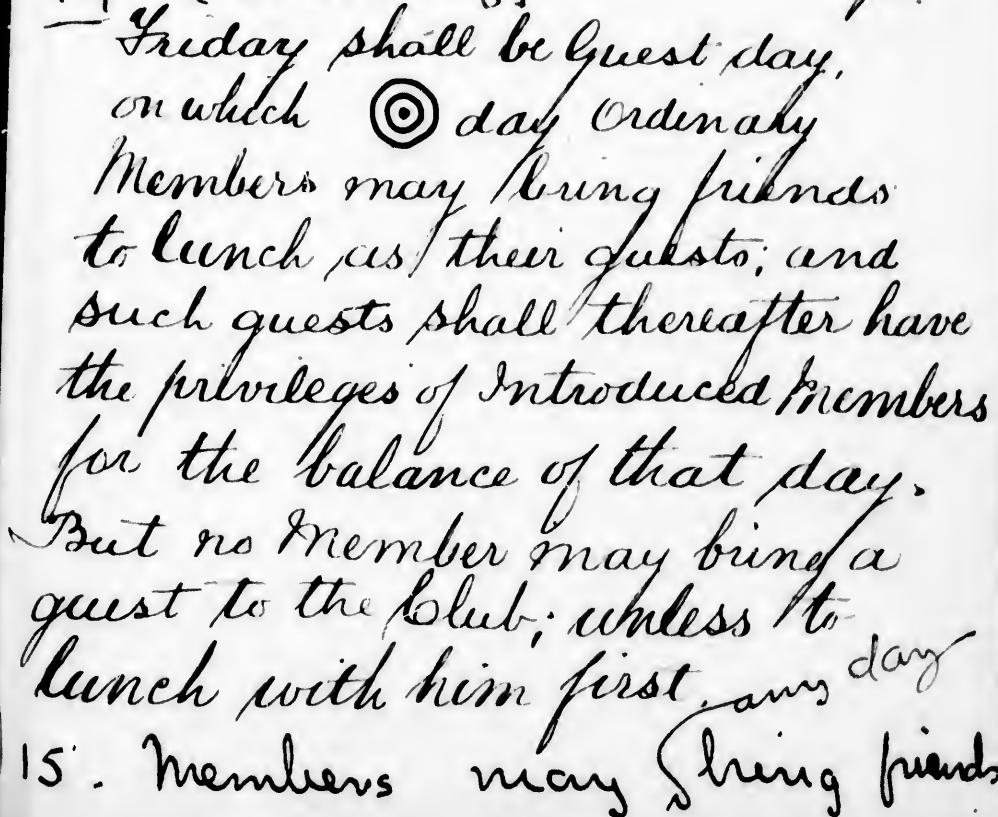 Friday shall be Guest day,
on which day Ordinary
Members may bring friends
to lunch as their guests; and
such guests shall thereafter have
the privileges of Introduced Members
for the balance of that day.
But no Member may bring a
guest to the Club; unless to
lunch with him first.
any day
15. Members may bring friends